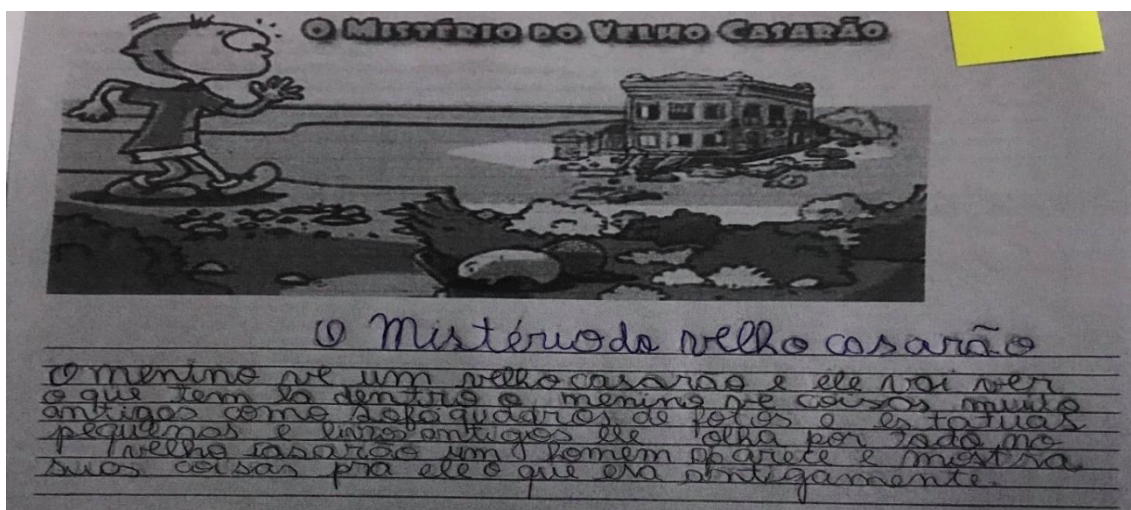 O MISTÉRIO DO VELHO CASARÃO
O Mistério do velho casarão
O menino ve um velho casarão e ele vai ver
o que tem la dentro o menino ve coisas muito
antigas como sofa quadros de fotos e estatuas
pequenas e livros antigos ele olha por todo no
velho casarão um homem aparece e mostra
suas coisas pra ele o que era antigamente.